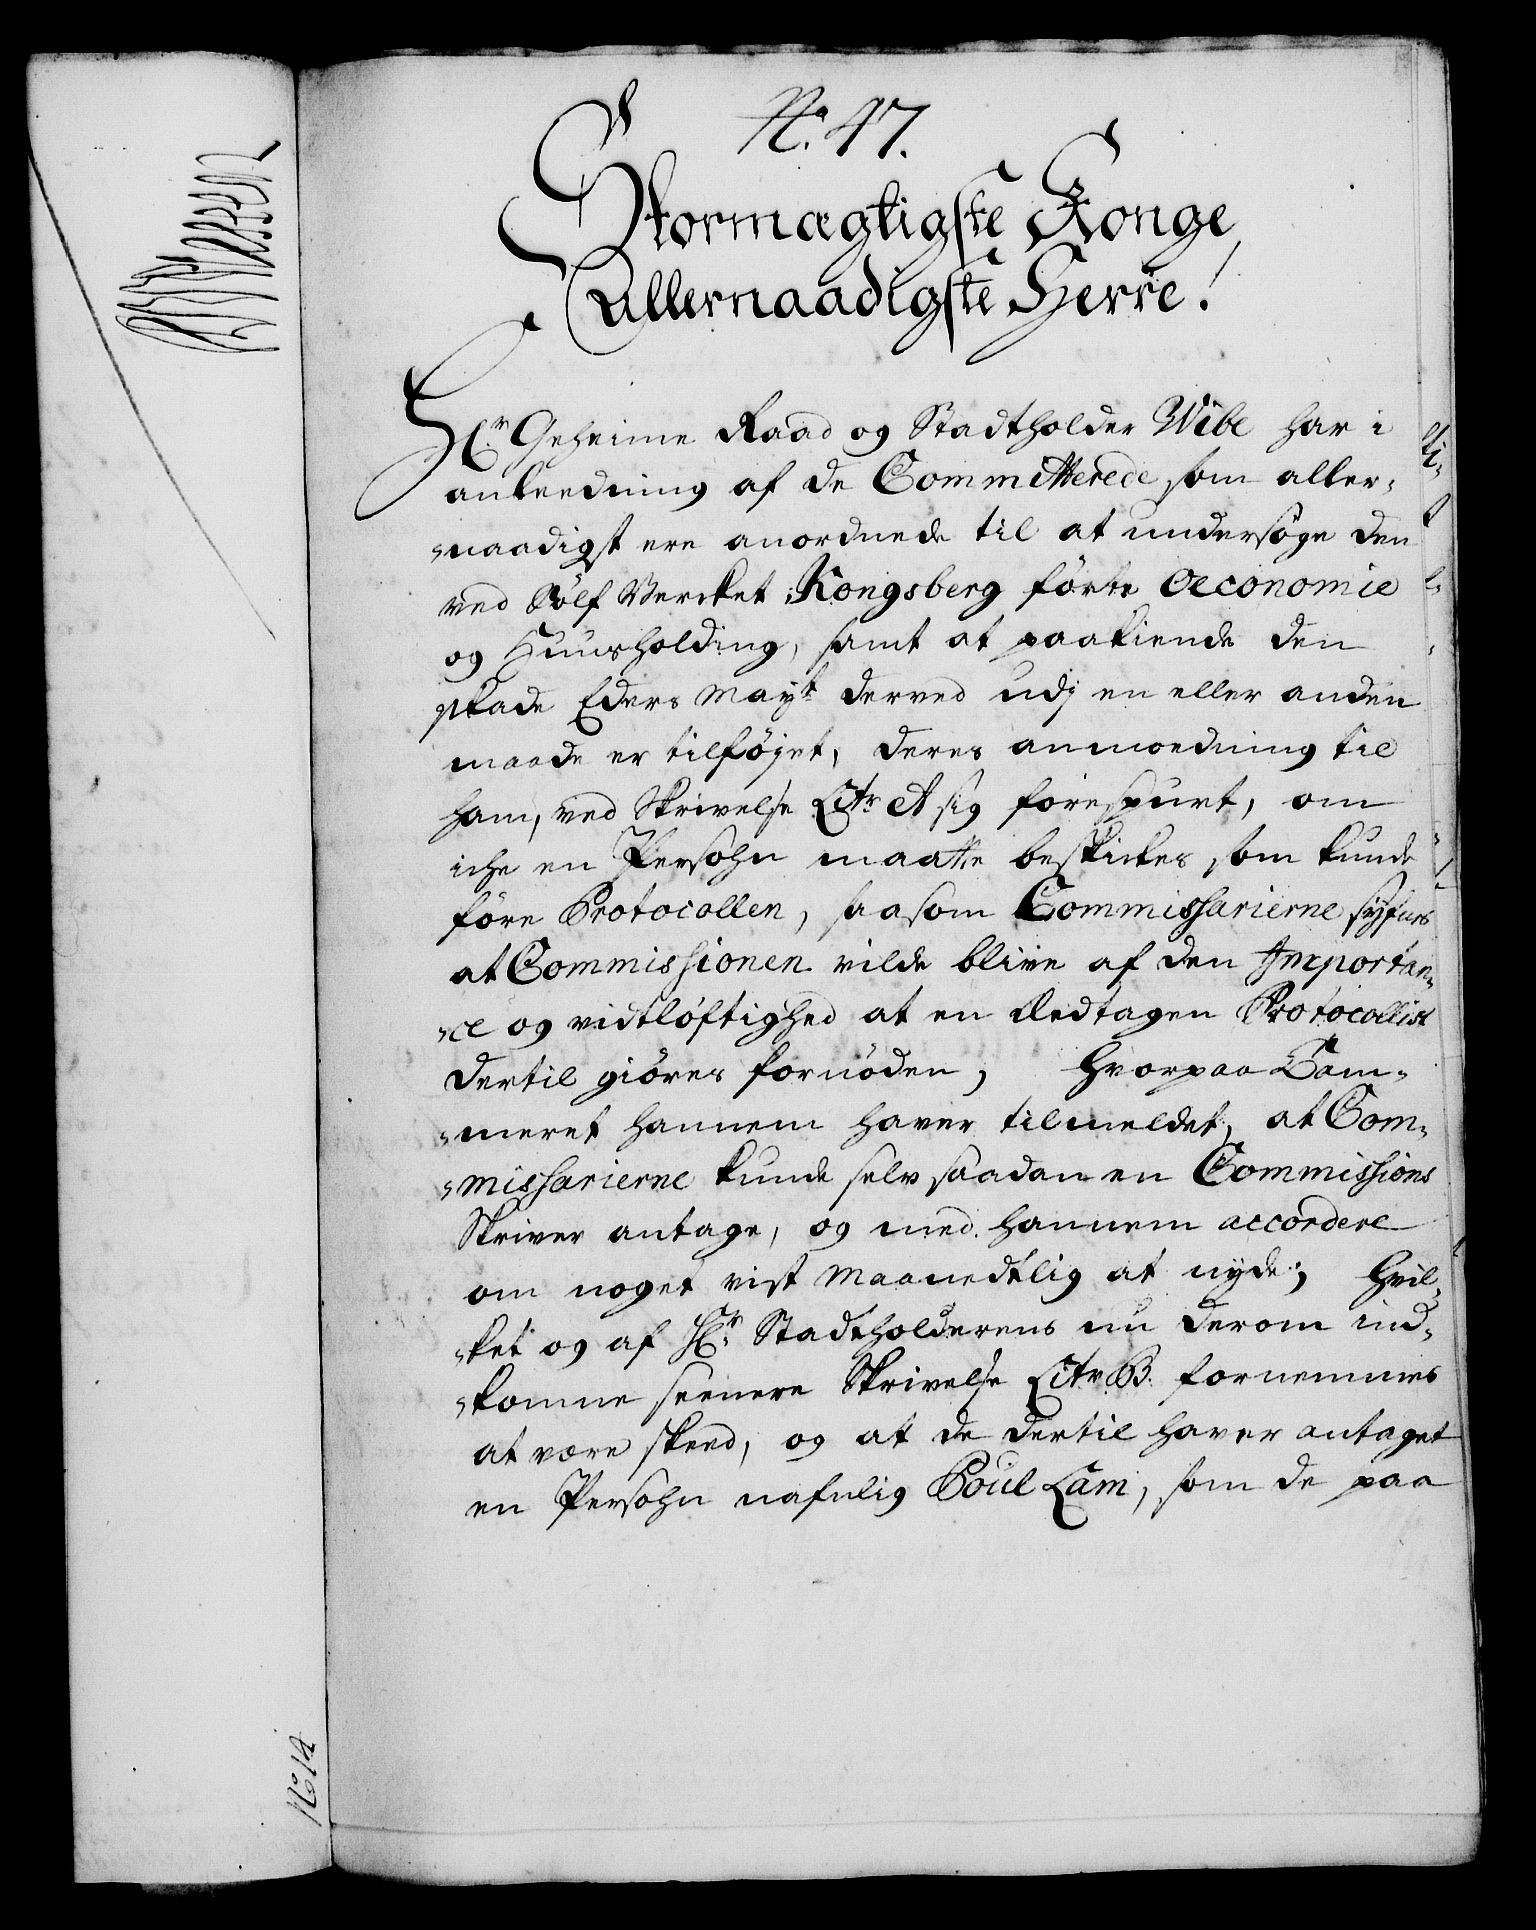 No. 47.
Stormægtigste Konge
Allernaadigste Herre!
Hr. Geheime Raad og Stadtholder Wibe har i
anleedning af de Committerede, som aller-
-naadigst ere anordnede til at undersöge den
ved Sölf Vercket Kongsberg förte Oeconomie
og Huusholding, samt at paakiende den
skade Eders Mayt derved udj en eller anden
maade er tilföjet, deres anmodning til
ham, ved Skrivelse Litr A sig forespurt, om
icke en Persohn maatte beskickes, som kunde
före Protocollen, saasom Commissarierne syfnes
at Commissionen vilde blive af den Importan-
-ce og vidtlöftighed at en Eedtagen Protocollist
dertil giöres fornöden, hvorpaa Cam-
-meret hannem haver tilmeldet, at Com-
-missarierne kunde selv saadan en Commissions
Skriver antage, og med hannem accordere
om noget vist Maanedtlig at nyde; Hvil-
-ket og af Hr. Stadtholderens nu derom ind-
-komne seenere Skrivelse Litr B. fornemmes
at være skeed, og at de dertil haver antaget
en Persohn nafnlig Poul Lam, som de paa
No 14